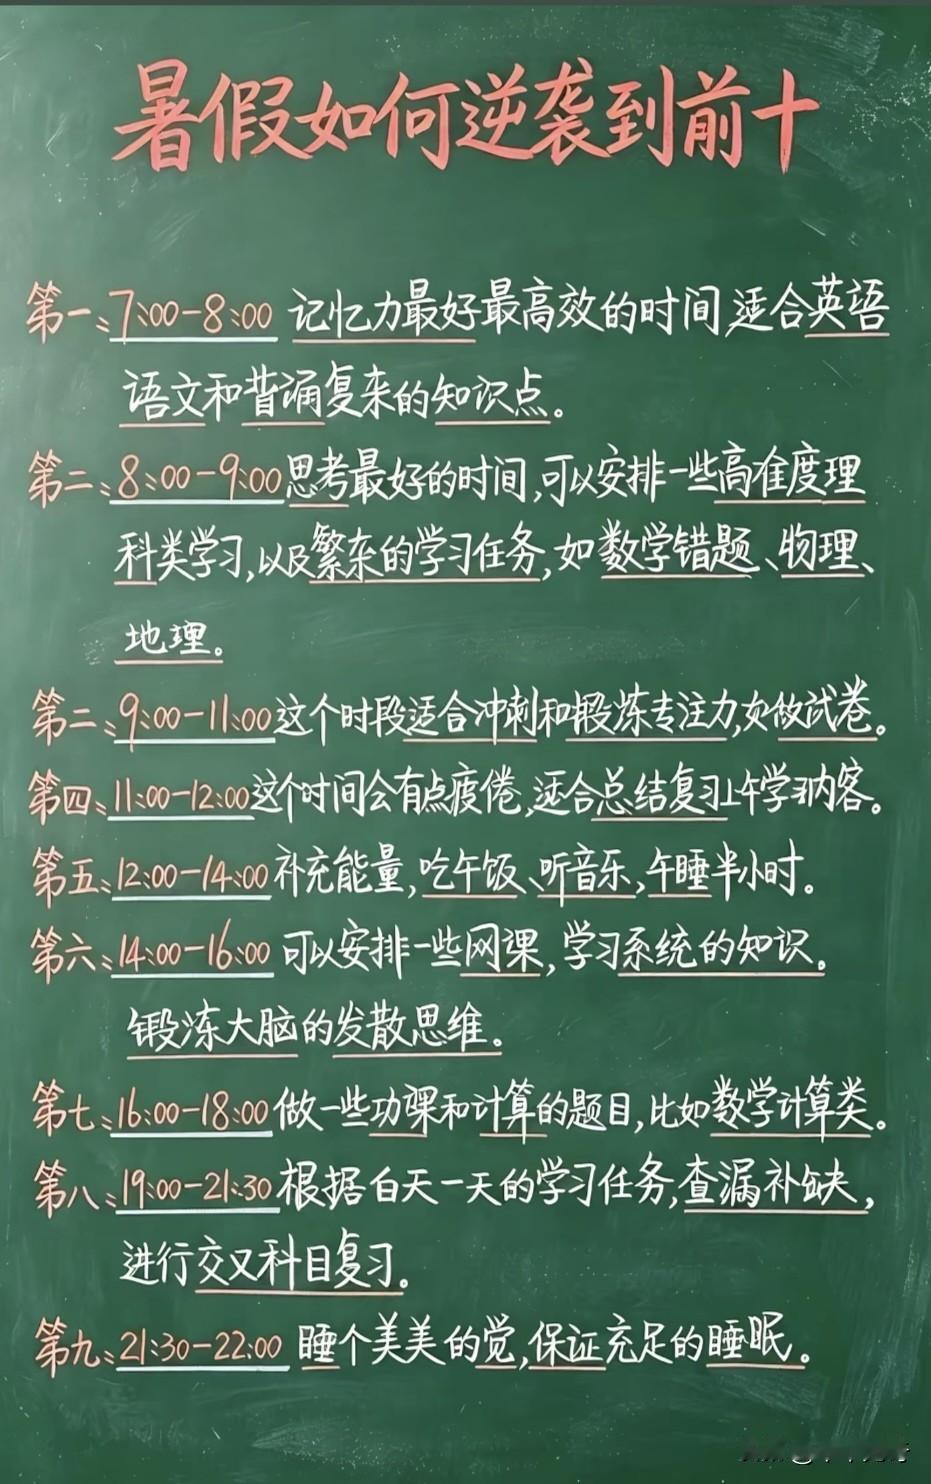 暑假如何逆袭到前十
第一、7:00-8:00 记忆力最好最高效的时间,适合英语
语文和背诵复来的知识点。
第二、8:00-9:00思考最好的时间,可以安排一些高准度理
科类学习,以及繁杂的学习任务,如数学错题、物理、
地理。
第二、9:00-11:00这个时段适合冲刺和锻炼专注力,如做试卷。
第四、11:00-12:00这个时间会有点疲倦,适合总结复习上午学习内客。
第五、12:00-14:00补充能量,吃午饭、听音乐,午睡半小时.
第六、14:00-16:00 可以安排一些网课,学习系统的知识.
锻炼大脑的发散思维.
第七、16:00-18:00做一些功课和计算的题目,比如数学计算类。
第八、19:00-21:30根据白天一天的学习任务,查漏补缺,
进行交叉科目复习.
第九、21:30-22:00 睡个美美的觉,保证充足的睡眠。